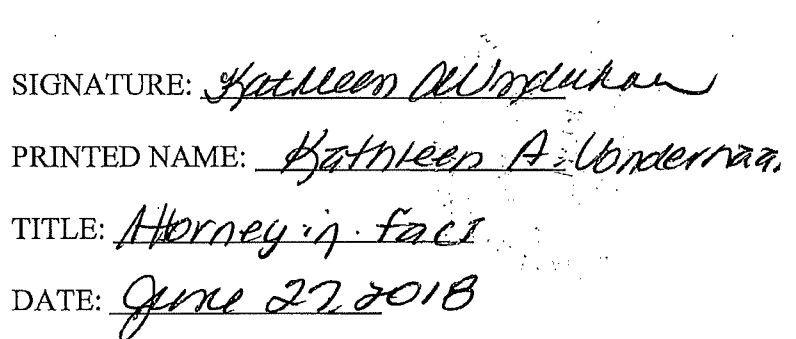 SIGNATURE: Kathleen A Vonderhaar
PRINTED NAME: Kathleen A. Vonderhaa
TITLE: Attorney-in-fact
DATE: June 27, 2018